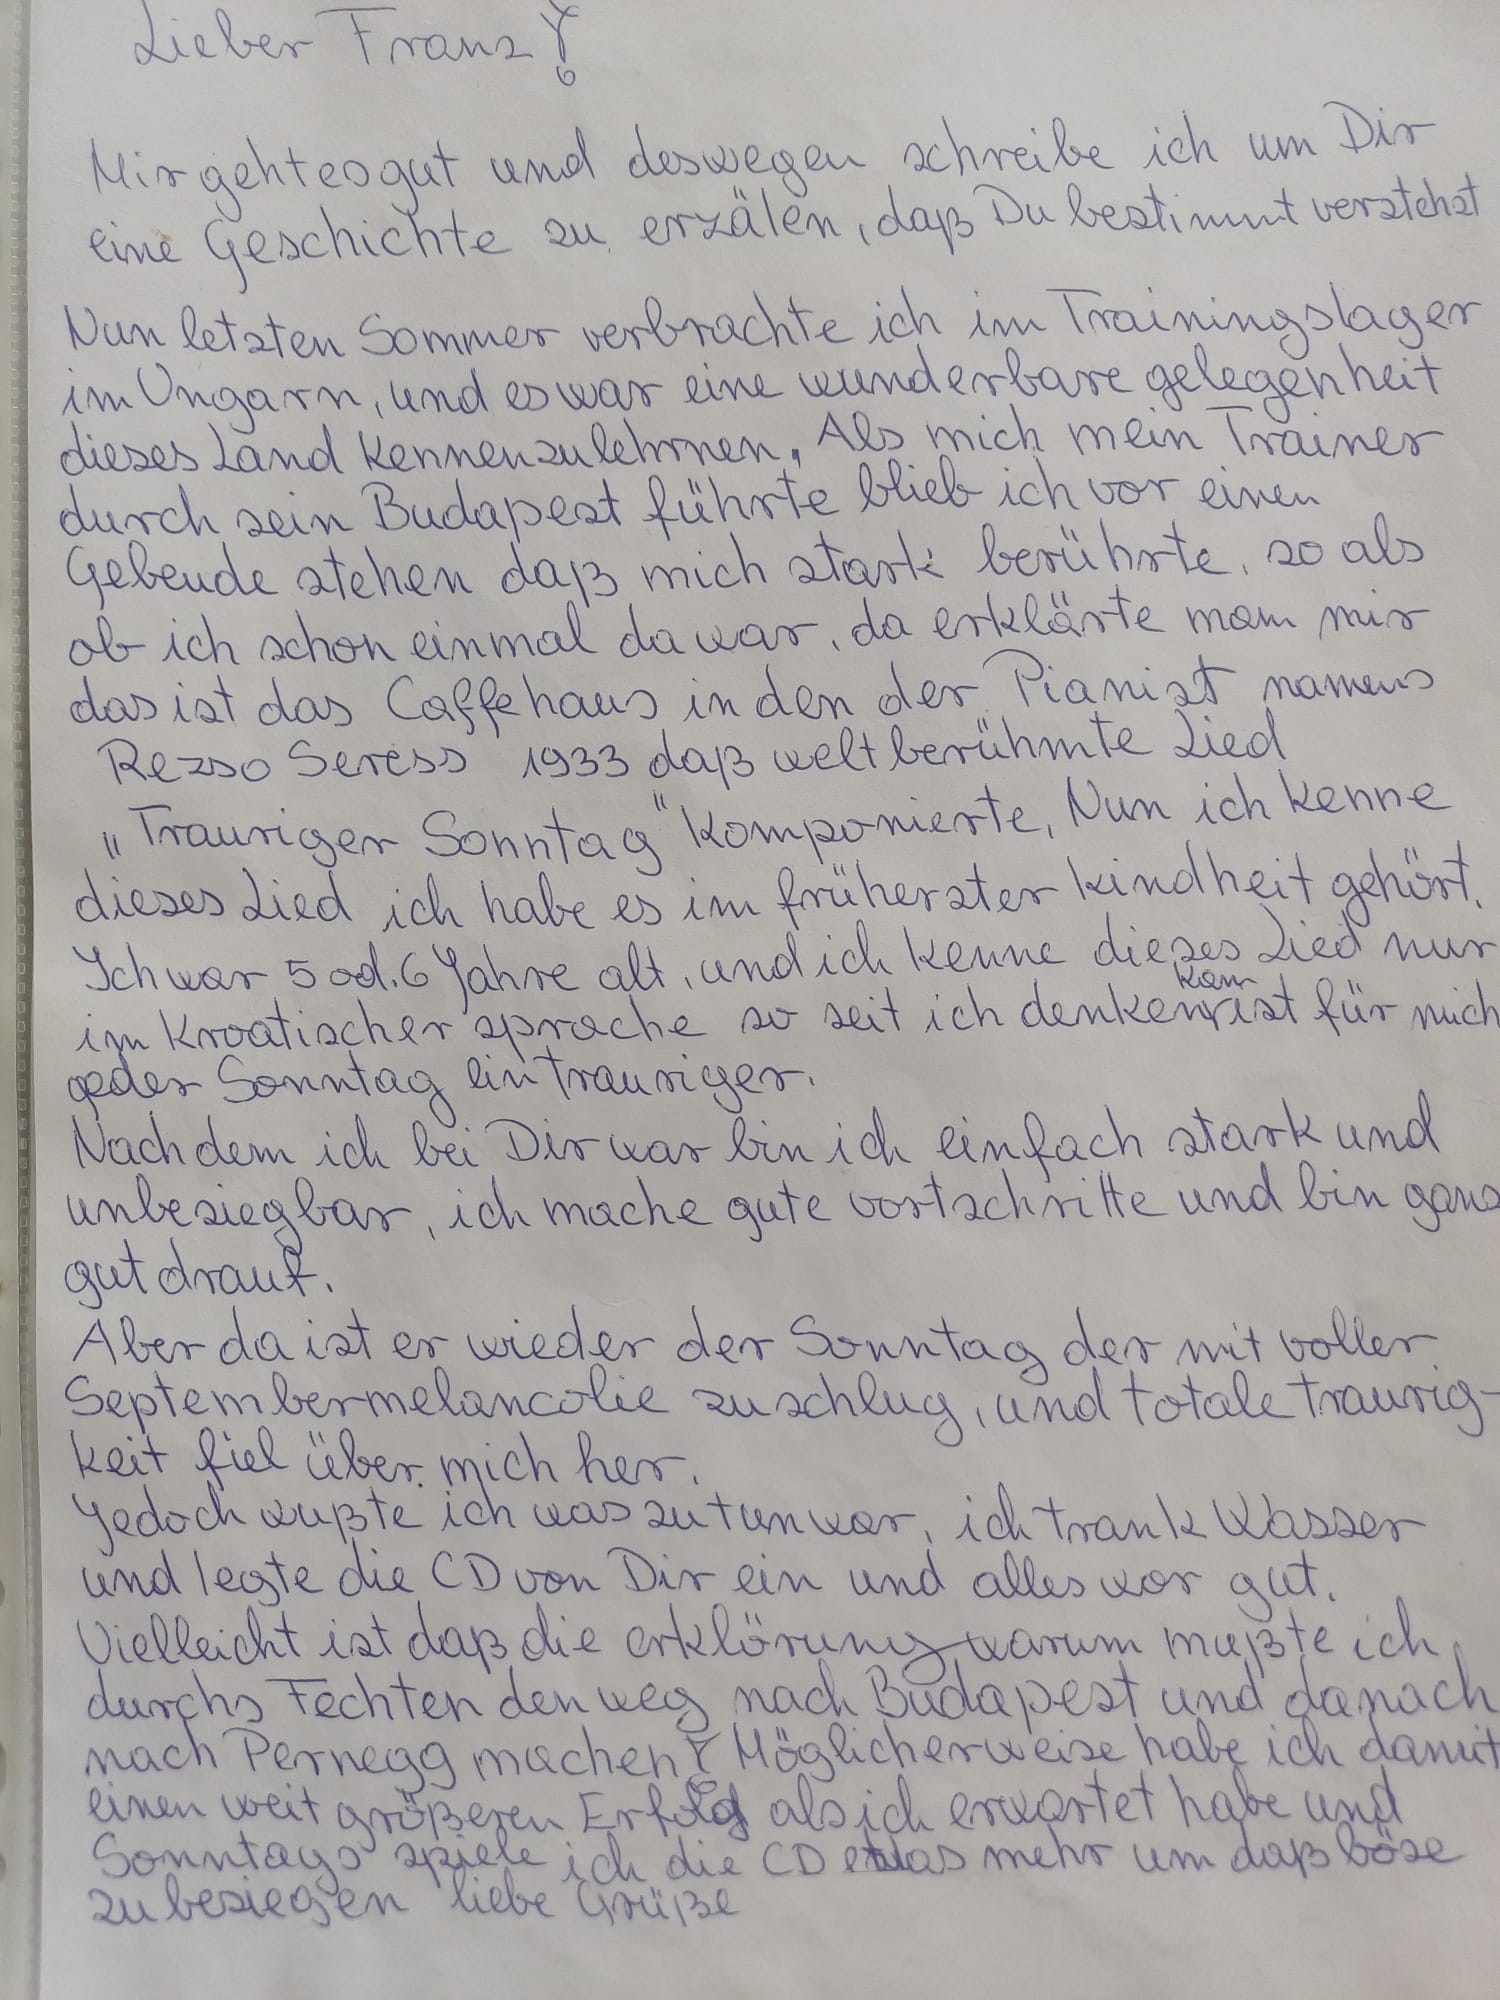 Lieber Franz!
Mir geht es gut und deswegen schreibe ich um Dir
eine Geschichte zu erzälen, daß Du bestimmt verstehst
Nun letzten Sommer verbrachte ich im Trainingslager
im Ungarn, und es war eine wunderbare gelegenheit
dieses Land kennenzulehrnen. Als mich mein Trainer
durch sein Budapest führte blieb ich vor einen
Gebeude stehen daß mich stark berührte, so als
ob ich schon einmal da war, da erklärte man mir
das ist das Caffehaus in den der Pianist namens
Rezso Seress 1933 daß weltberühmte Lied
„Trauriger Sonntag" komponierte, Nun ich kenne
dieses Lied ich habe es im früherster kindheit gehört.
Ich war 5 od. 6 Jahre alt, und ich kenne dieses Lied nur
im Kroatischer sprache so seit ich denken kann ist für mich
jeder Sonntag ein trauriger.
Nachdem ich bei Dir war bin ich einfach stark und
unbesiegbar, ich mache gute vortschritte und bin ganz
gut drauf.
Aber da ist er wieder der Sonntag der mit voller
Septembermelancolie zuschlug, und totale traurig-
keit fiel über mich her.
Jedoch wußte ich was zu tun war, ich trank Wasser
und legte die CD von Dir ein und alles war gut.
Vielleicht ist daß die erklärung warum mußte ich
durchs Fechten den weg nach Budapest und danach
nach Pernegg machen? Möglicherweise habe ich damit
einen weit größeren Erfolg als ich erwartet habe und
Sonntags spiele ich die CD etwas mehr um daß böse
zu besiegen liebe Grüße